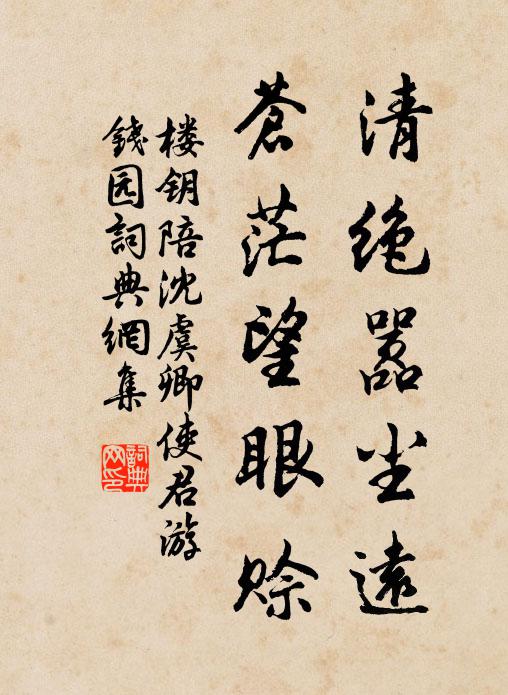 清绝嚣尘远
苍茫望眼赊
楼钥陪沈虞卿使君游
钱园詞典網集
詞典
网印